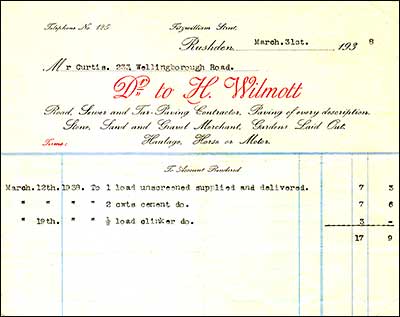 Telephone No. 125
Fitzwilliam Street,
Rushden, March. 31st. 1938
Mr Curtis. 233 Wellingborough Road.
Dr. to H. Wilmott
Road, Sewer and Tar-Paving Contractor, Paving of every description.
Stone, Sand and Gravel Merchant, Gardens Laid Out.
Terms: Haulage, Horse or Motor.
To Account Rendered
March. 12th. 1938. To 1 load unscreened supplied and delivered. 7 3
" " " " 2 cwts cement do. 7 6
" 19th. " ½ load clinker do. 3 -
17 9